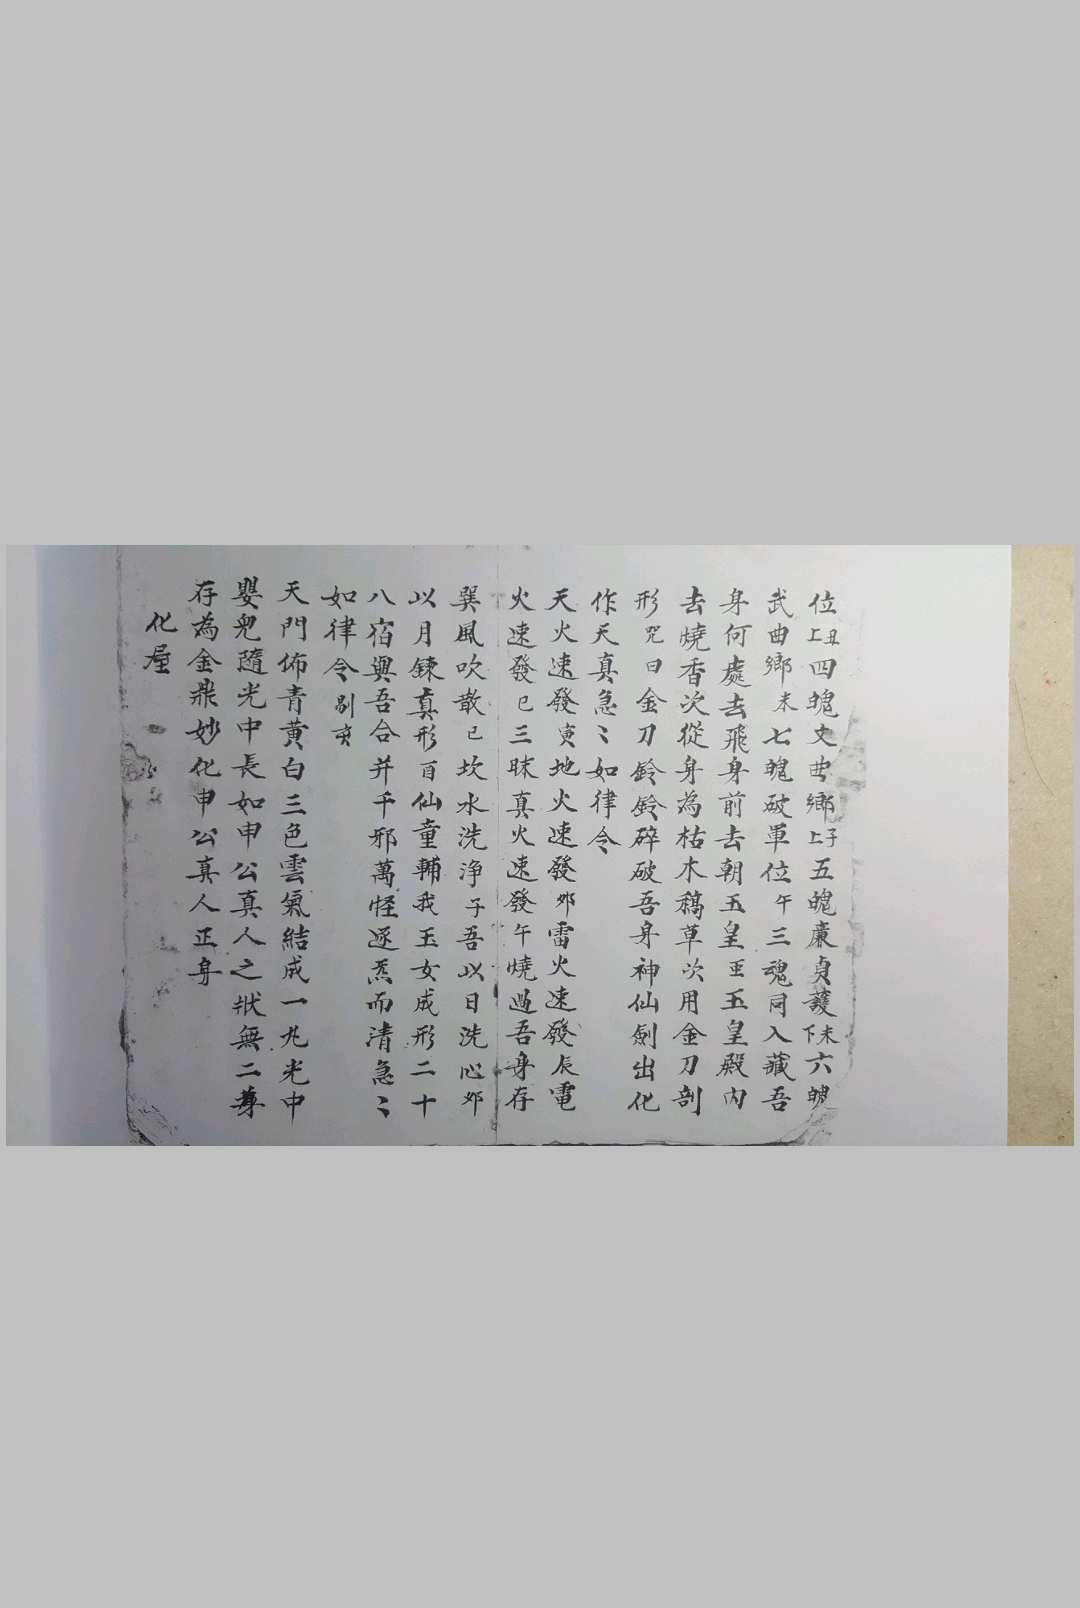 位上丑四魄文曲鄉上子五魄廉貞護下未六魄
武曲鄉未七魄破軍位午三魂同入藏吾
身何處去飛身前去朝玉皇玉皇殿內
去燒香次從身為枯木稿草次用金刀剖
形咒曰金刀鈴鈴碎破吾身神仙劍出化
作天真急〻如律令
天火速發寅地火速發卯雷火速發辰電
火速發巳三昧真火速發午燒過吾身存
巽風吹散巳坎水洗淨子吾以日洗心卯
以月鍊真形酉仙童輔我玉女成形二十
八宿與吾合并千邪萬怪逐炁而清急〻
如律令剔亥
天門佈青黃白三色雲氣結成一丸光中
嬰兒隨光中長如申公真人之狀無二尊
存為金鼎妙化申公真人正身
化屋